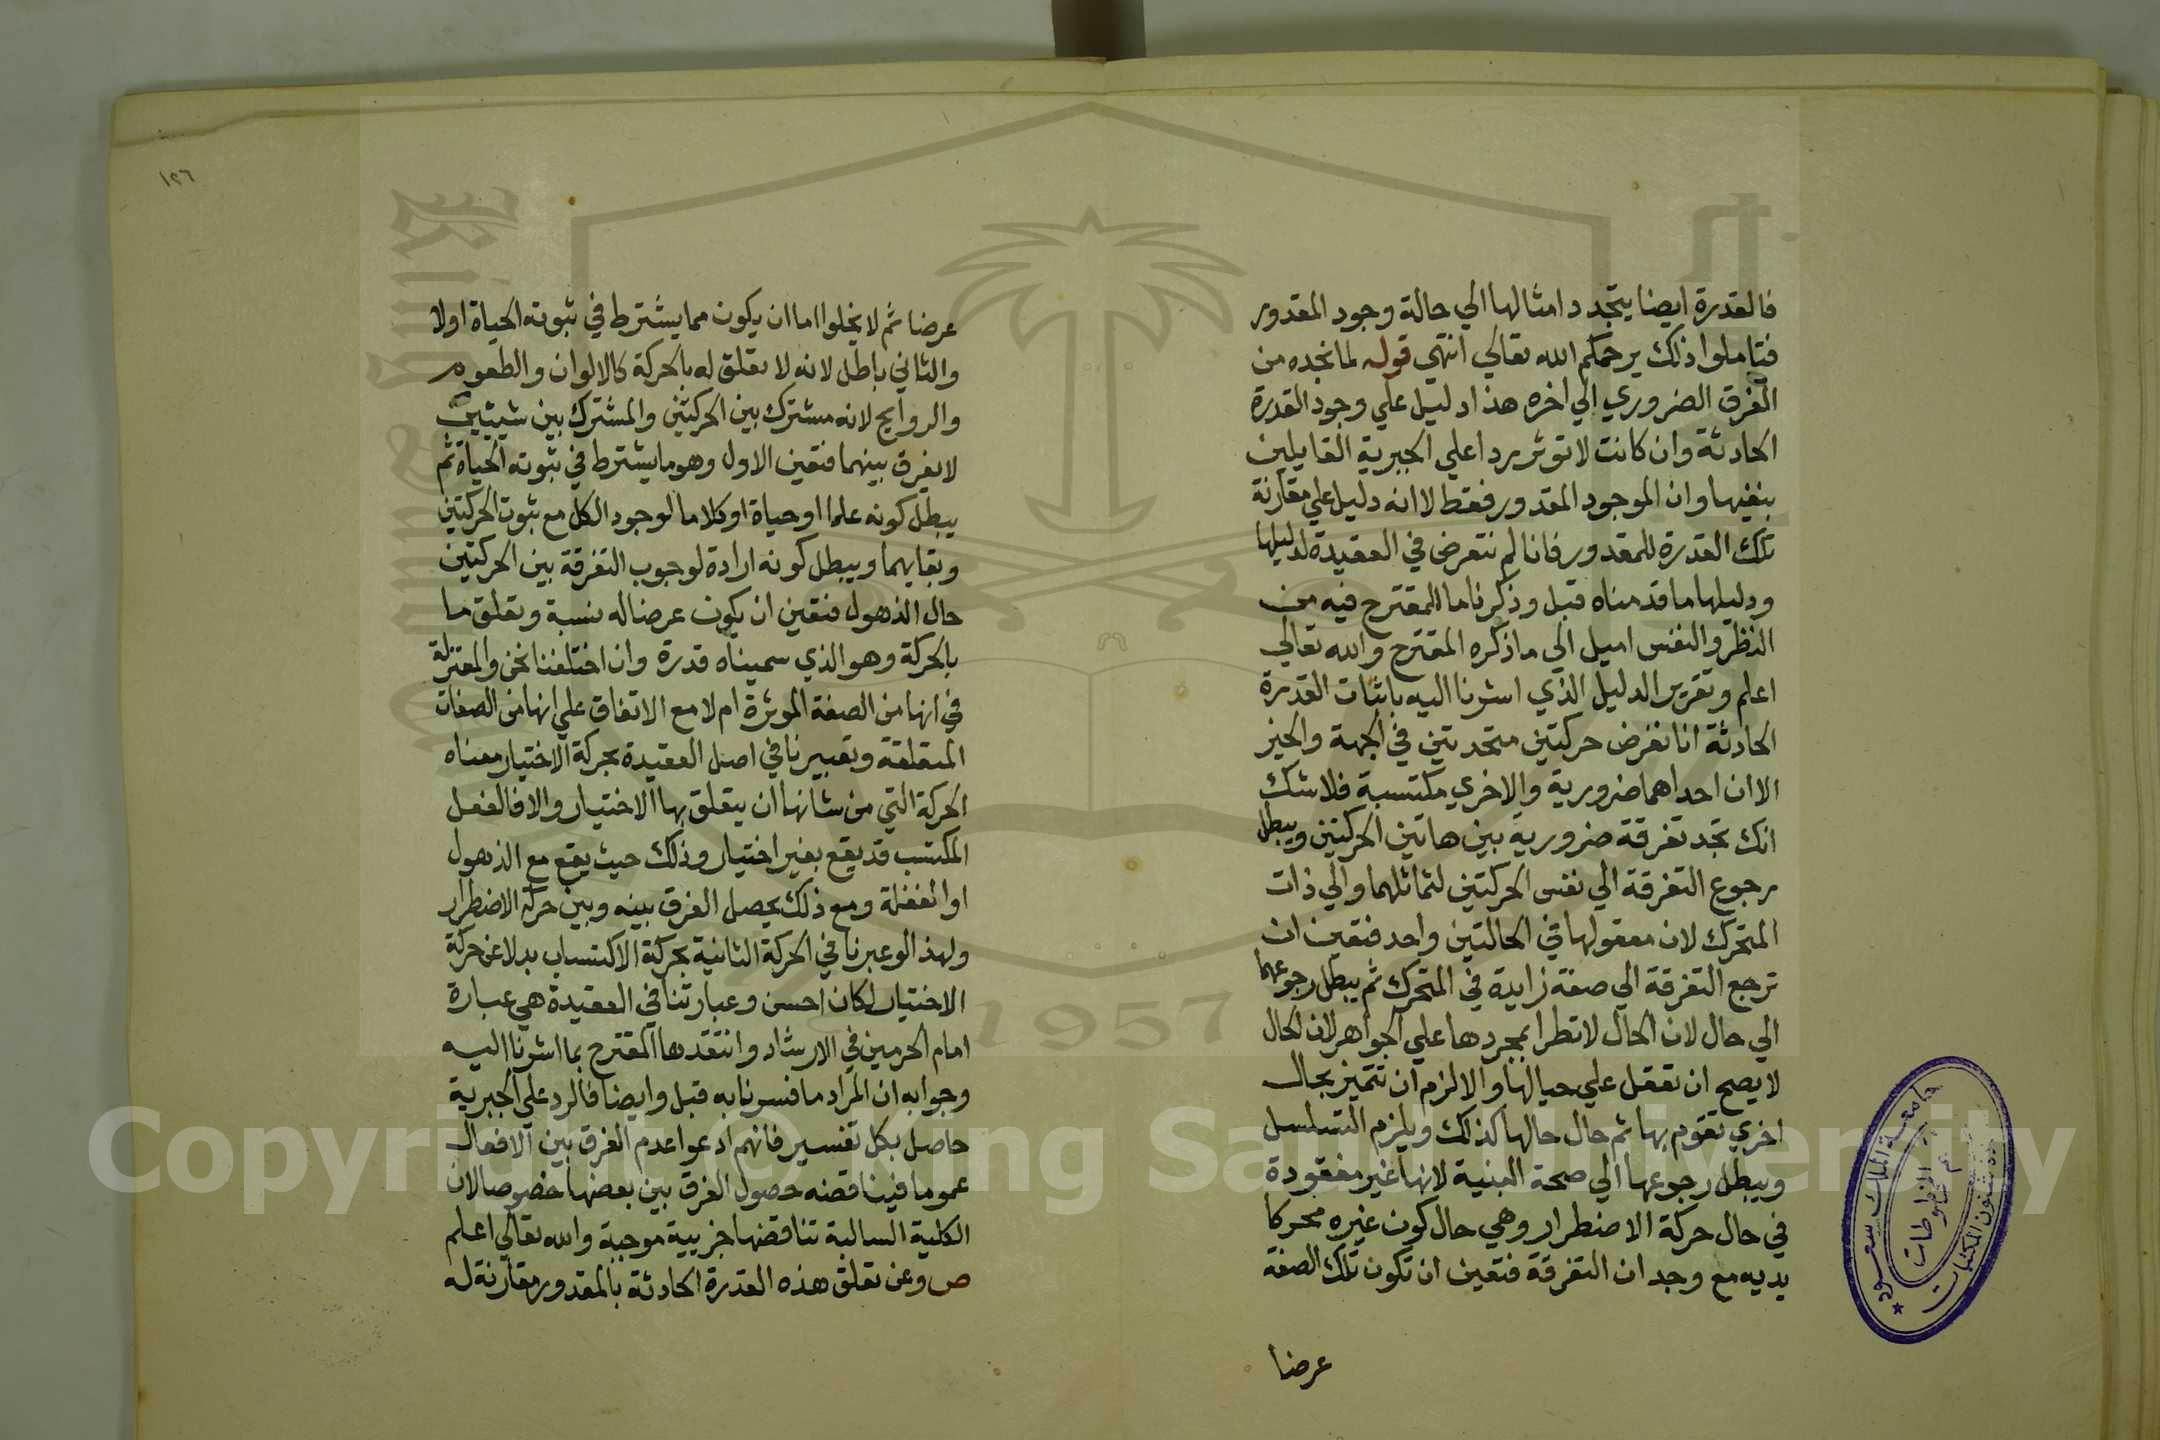 فالقدرة ايضا يتجدد امثالها الي حالة وجود المقدور
فتاملوا ذلك يرحمكم الله تعالي انتهي قوله لما نجده من
الفرق الضروري الي اخره هذا دليل علي وجود القدرة
الحادثة وان كانت لا توثر ردا علي الجبرية القايلين
بنفيها وان الموجود المقدور فقط لا انه دليل علي مقارنة
تلك القدرة للمقدور فانا لم نتعرض في العقيدة لدليلها
ودليلها ما قدمناه قبل وذكرنا ما للمقترح فيه من
النظر والنفس اميل الي ما ذكره المقترح والله تعالي
اعلم وتقرير الدليل الذي اشرنا اليه باثبات القدرة
الحادثة انا نفرض حركتين متحدتين في الجهة والحيز
الا ان احداهما ضرورية والاخري مكتسبة فلا شك
انك تجد تفرقة ضرورية بين هاتين الحركتين ويبطل
رجوع التفرقة الي نفس الحركتين لتماثلهما والي ذات
المتحرك لان معقولها في الحالتين واحد فتعين ان
ترجع التفرقة الي صفة زايدة في المتحرك ثم يبطل رجوعها
الي حال لان الحال لا تطرا بمجردها علي الجواهر لان الحال
لا يصح ان تعقل علي حيالها والا لزم ان تتميز بحال
اخري تقوم بها ثم حال حالها كذلك ويلزم التسلسل
ويبطل رجوعها الي صحة البنية لانها غير مفقودة
في حال حركة الاضطرار وهي حال كون غيره محركا
يديه مع وجدان التفرقة فتعين ان تكون تلك الصفة
عرضا
١٢٦
عرضا ثم لا يخلوا اما ان يكون مما يشترط في ثبوته الحياة اولا
والثاني باطل لانه لا تعلق له بالحركة كالالوان والطعوم
والروايح لانه مشترك بين الحركتين والمشترك بين شييين
لا يفرق بينهما فتعين الاول وهو ما يشترط في ثبوته الحياة ثم
يبطل كونه علما او حياة او كلاما لوجود الكل مع ثبوت الحركتين
وبقايهما ويبطل كونه ارادة لوجوب التفرقة بين الحركتين
حال الذهول فتعين ان يكون عرضا له نسبة وتعلق ما
بالحركة وهو الذي سميناه قدرة وان اختلفنا نحن والمعتزلة
في انها من الصفة الموثرة ام لا مع الاتفاق علي انها من الصفات
المتعلقة وتعبيرنا في اصل العقيدة بحركة الاختيار معناه
الحركة التي من شانها ان يتعلق بها الاختيار والا فالفعل
المكتسب قد يقع بغير اختيار وذلك حيث يقع مع الذهول
او الغفلة ومع ذلك يحصل الفرق بينه وبين حركة الاضطرار
ولهذا لو عبرنا في الحركة الثانية بحركة الاكتساب بدلا عن حركة
الاختيار لكان احسن وعبارتنا في العقيدة هي عبارة
امام الحرمين في الارشاد وانتقدها المقترح بما اشرنا اليه
وجوابه ان المراد ما فسرنا به قبل وايضا فالرد علي الجبرية
حاصل بكل تفسير فانهم ادعوا عدم الفرق بين الافعال
عموما فيناقضه حصول الفرق بين بعضها خصوصا لان
الكلية السالبة تناقضها جزيية موجبة والله تعالي اعلم
ص وعن تعلق هذه القدرة الحادثة بالمقدور مقارنة له
جامعة الملك سعود
المخطوطات
شئون المكتبات
King Saud
1957
Copyright © King Saud University